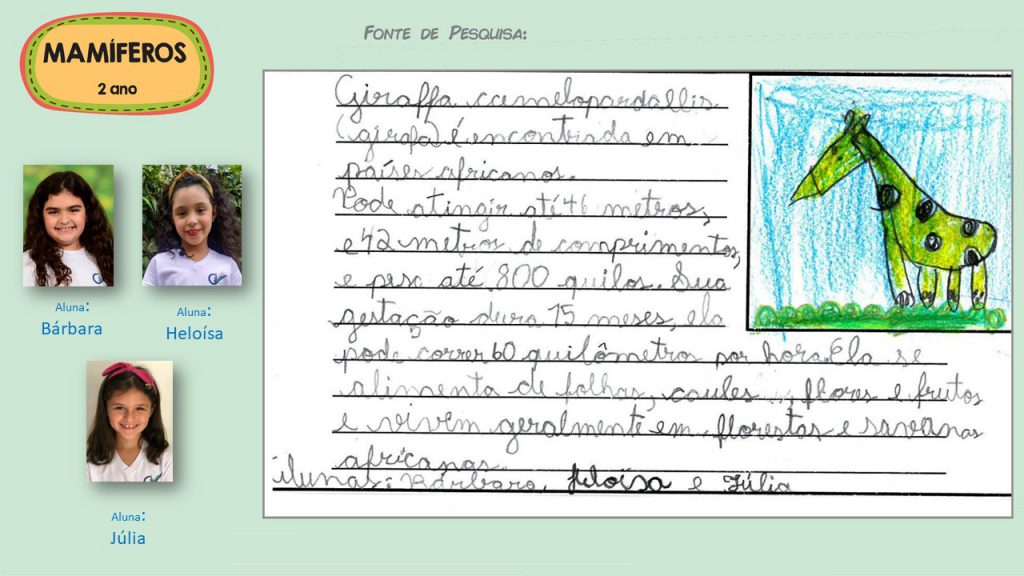 MAMÍFEROS
2 ano
FONTE DE PESQUISA:
Giraffa camelopardallis
(girafa) é encontrada em
países africanos.
Pode atingir até 46 metros,
e 42 metros de comprimentos,
e peso até 800 quilos. Sua
gestação dura 15 meses, ela
pode correr 60 quilômetros por hora. Ela se
alimenta de folhas, caules, flores e frutos
e vivem geralmente em florestas e savanas
africanas.
Alunas: Bárbara, Heloísa e Júlia
Aluna:
Bárbara
Aluna:
Heloísa
Aluna:
Júlia